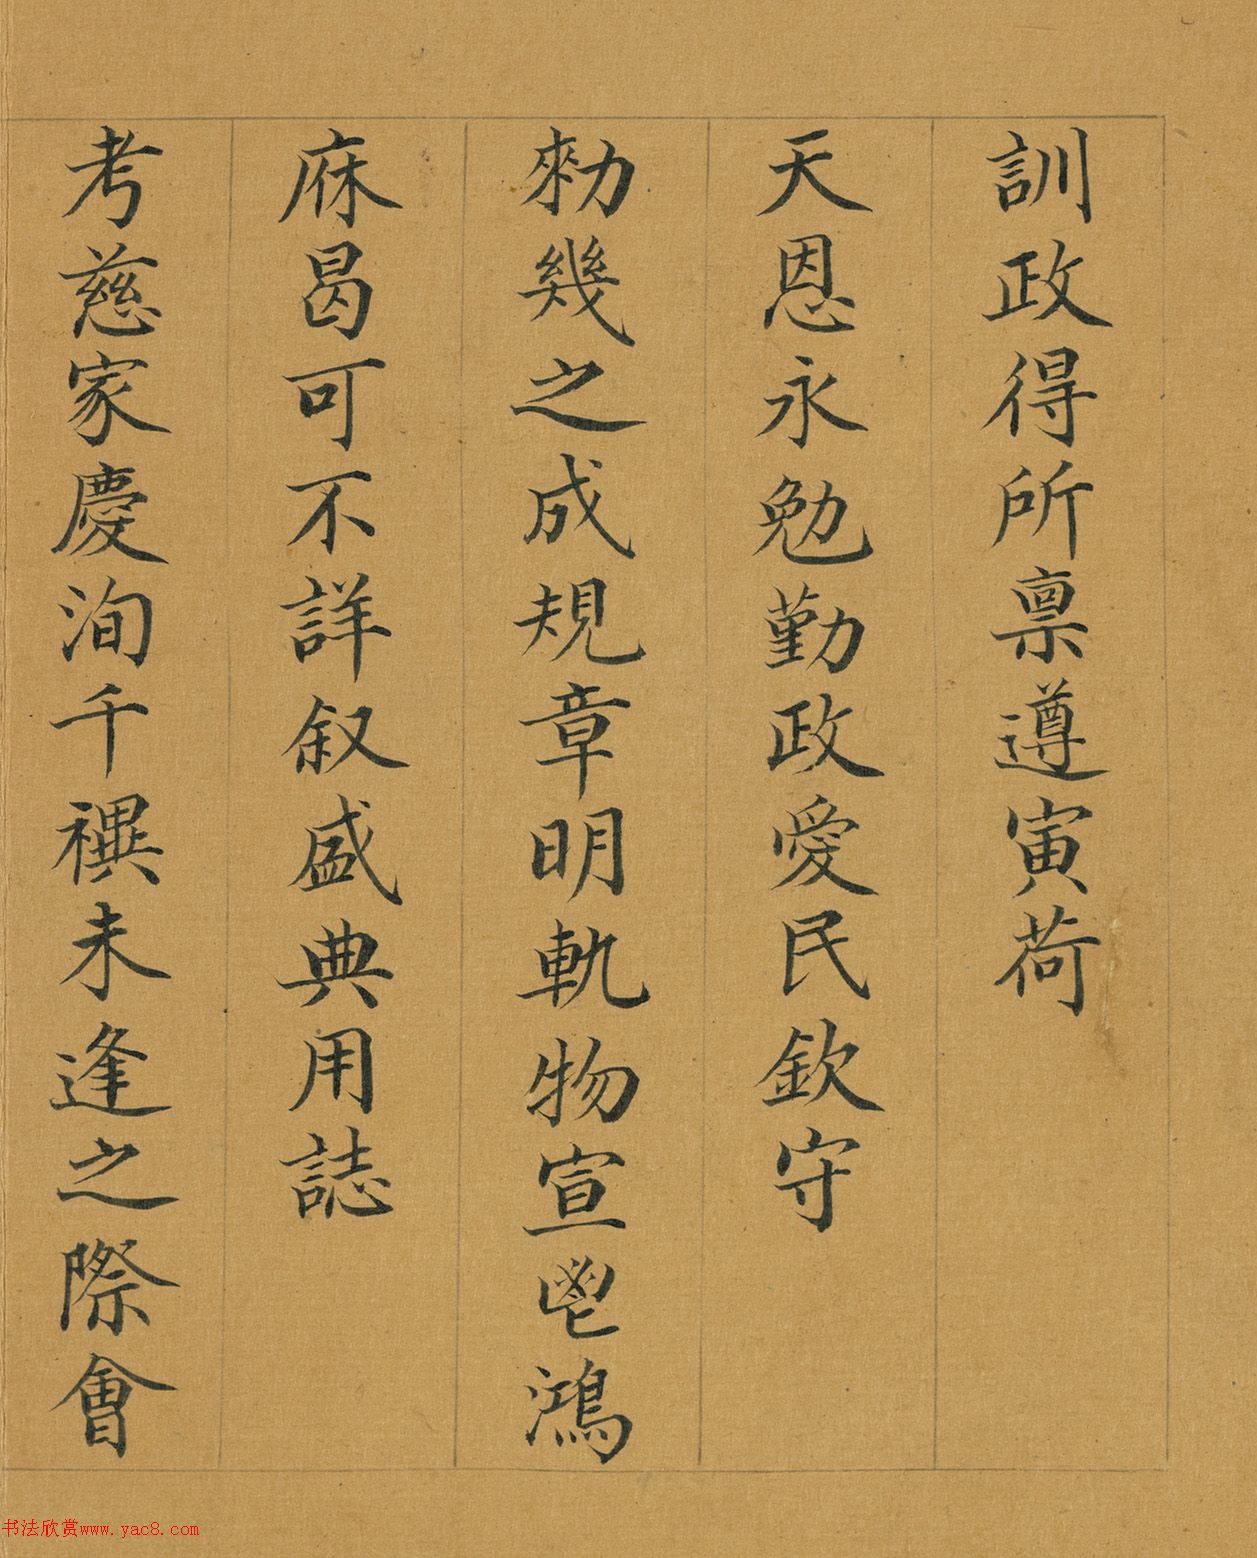 訓政得所禀遵寅荷
天恩永勉勤政愛民欽守
勑幾之成規章明軌物宣鬯鴻
庥曷可不詳叙盛典用誌
考慈家慶洵千禩未逢之際會
书法欣赏www.yac8.com